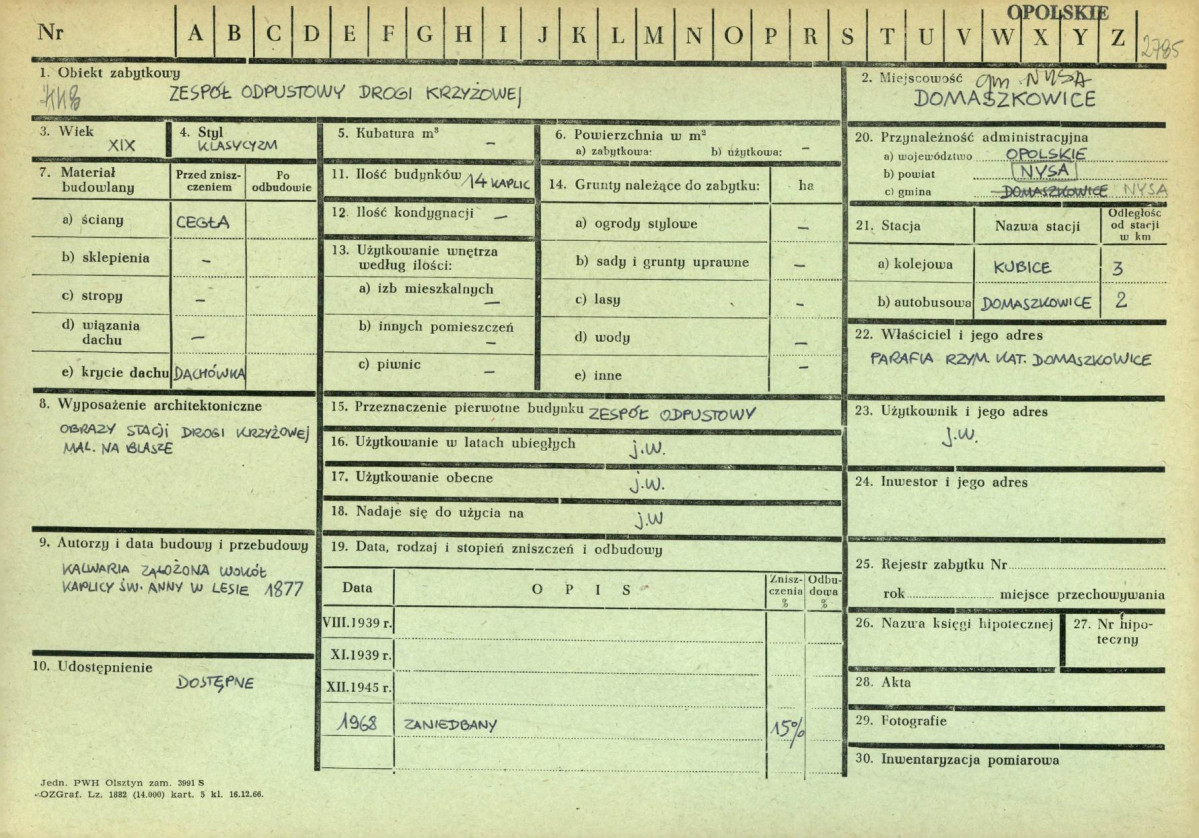 OPOLSKIE
Nr A B C D E F G H I J K L M N O P R S T U V W X Y Z
2785
1. Obiekt zabytkowy
ZESPÓŁ ODPUSTOWY DROGI KRZYŻOWEJ
2. Miejscowość gm NYSA
DOMASZKOWICE
3. Wiek
XIX
4. Styl
KLASYCYZM
5. Kubatura m³
–
6. Powierzchnia w m²
a) zabytkowa: b) użytkowa: –
7. Materiał budowlany
Przed zniszczeniem
Po odbudowie
a) ściany CEGŁA
b) sklepienia –
c) stropy –
d) wiązania dachu –
e) krycie dachu DACHÓWKA
8. Wyposażenie architektoniczne
OBRAZY STACJI DROGI KRZYŻOWEJ
MAL. NA BLASZE
9. Autorzy i data budowy i przebudowy
KALWARIA ZAŁOŻONA WOKÓŁ
KAPLICY ŚW. ANNY W LESIE 1877
10. Udostępnienie
DOSTĘPNE
11. Ilość budynków 14 KAPLIC
12. Ilość kondygnacji –
13. Użytkowanie wnętrza
według ilości:
a) izb mieszkalnych –
b) innych pomieszczeń –
c) piwnic –
14. Grunty należące do zabytku: ha
a) ogrody stylowe –
b) sady i grunty uprawne –
c) lasy –
d) wody –
e) inne –
15. Przeznaczenie pierwotne budynku ZESPÓŁ ODPUSTOWY
16. Użytkowanie w latach ubiegłych j.w.
17. Użytkowanie obecne j.w.
18. Nadaje się do użycia na j.w
19. Data, rodzaj i stopień zniszczeń i odbudowy
Data OPIS Zniszczenia % Odbudowa %
VIII.1939 r.
XI.1939 r.
XII.1945 r.
1968 ZANIEDBANY 15%
20. Przynależność administracyjna
a) województwo OPOLSKIE
b) powiat NYSA
c) gmina DOMASZKOWICE NYSA
21. Stacja Nazwa stacji Odległość od stacji w km
a) kolejowa KUBICE 3
b) autobusowa DOMASZKOWICE 2
22. Właściciel i jego adres
PARAFIA RZYM. KAT. DOMASZKOWICE
23. Użytkownik i jego adres
j.w.
24. Inwestor i jego adres
25. Rejestr zabytku Nr
rok miejsce przechowywania
26. Nazwa księgi hipotecznej
27. Nr hipoteczny
28. Akta
29. Fotografie
30. Inwentaryzacja pomiarowa
Jedn. PWH Olsztyn zam. 3991 S
OZGraf. Lz. 1882 (14.000) kart. 5 kl. 16.12.66.